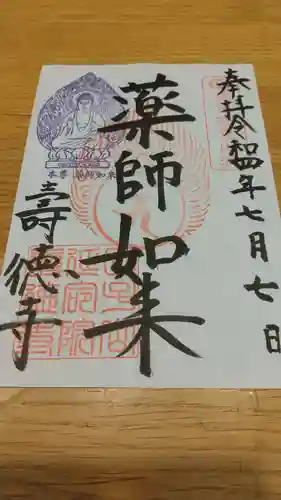 奉拝令和四年七月七日
薬師如来
本尊 薬師如来
壽徳寺